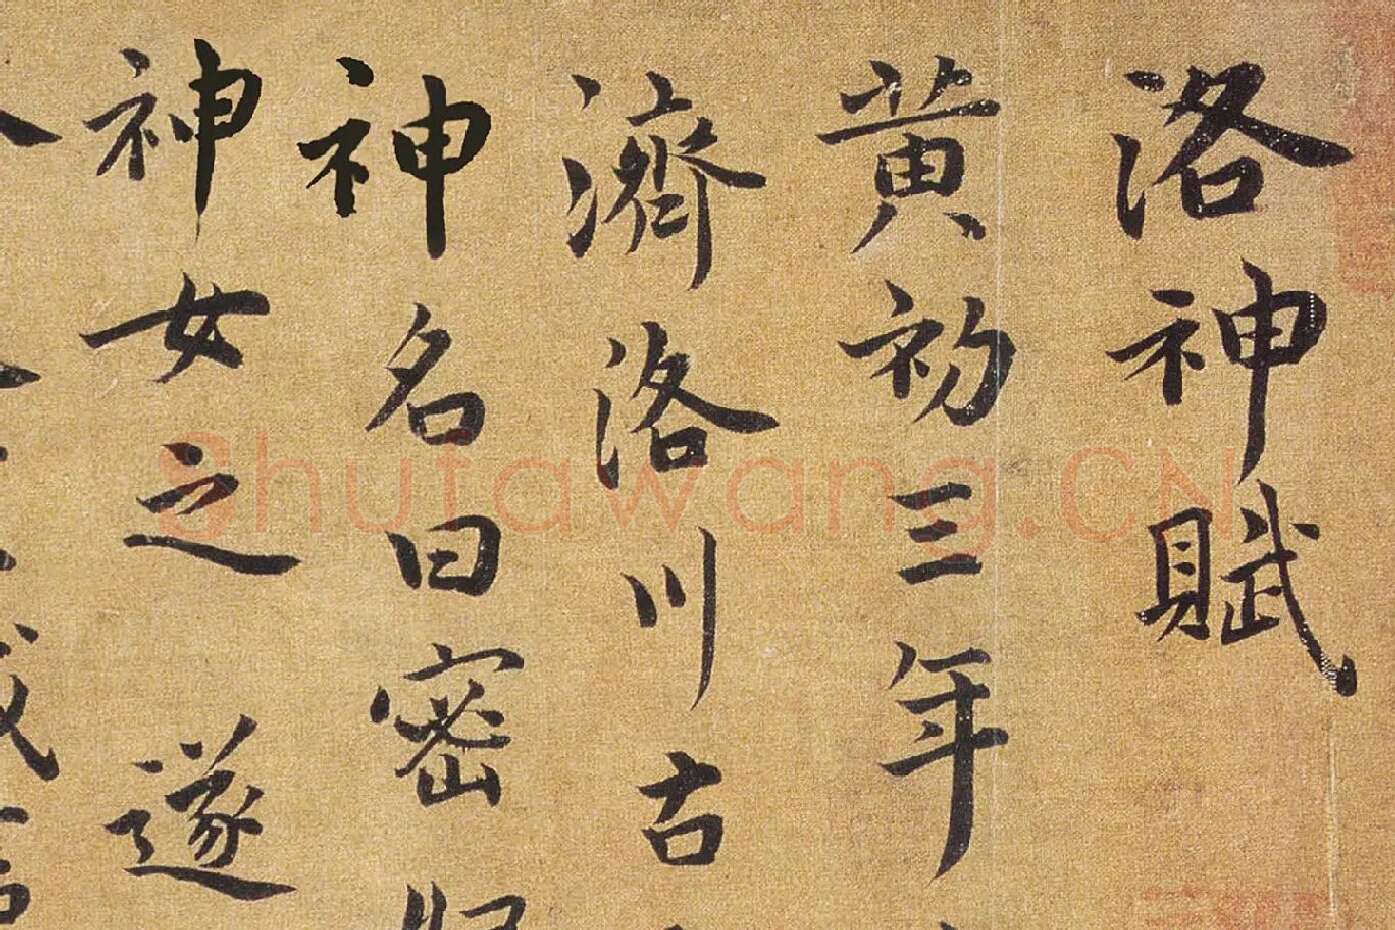 洛神賦
黄初三年
濟洛川古
神名曰密
神女之遂
Shufawang.CN